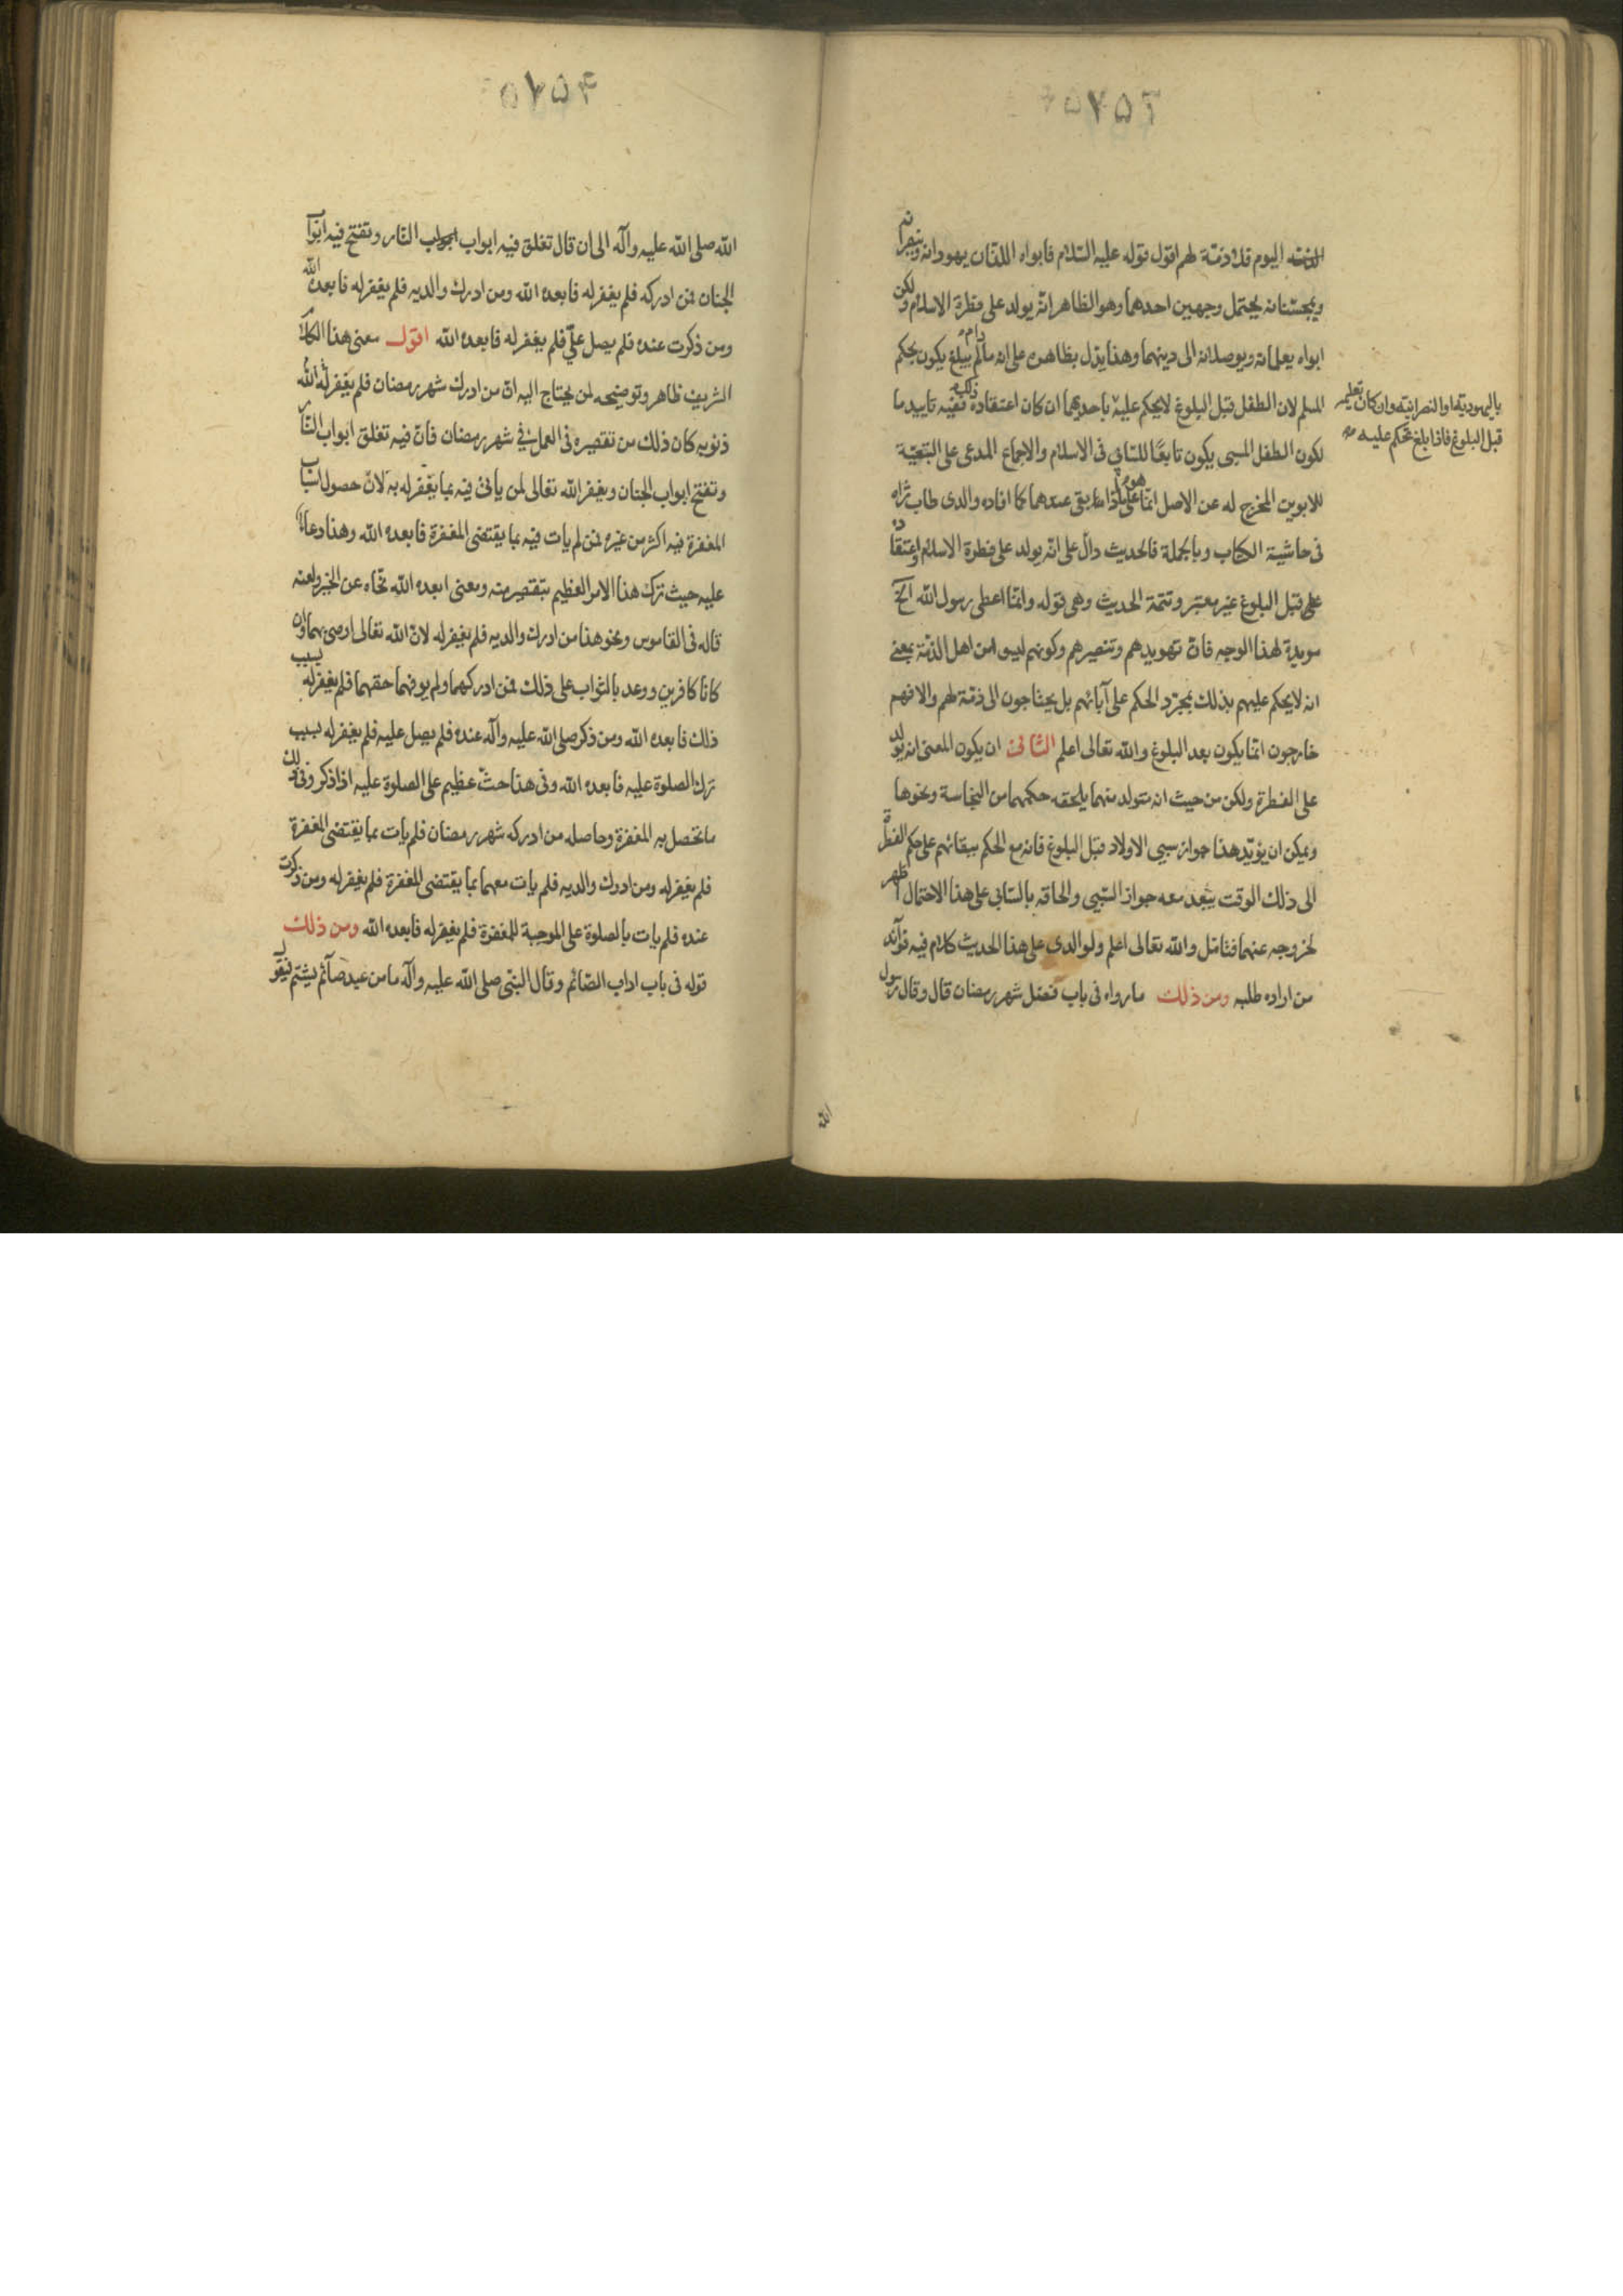 اليوم فلا ذمة لهم اقول قوله عليه السّلام فابواه اللذان يهودانه وينصرانه
ويمجسّانه يحتمل وجهين احدهما وهو الظاهر انّه يولد على فطرة الاسلام ولكن
ابواه يعلمانه ويوصلانه الى دينهما وهذا يدل بظاهره على انه مادام لم يبلغ يكون بحكم
المسلم لان الطفل قبل البلوغ لا يحكم عليه باحديهما ان كان اعتقاده ذلك ففيه تاييد ما
باليهودية او النصرانية وان كان تعليم
قبل البلوغ فاذا بلغ تحكم عليه
لكون الطفل المسبى يكون تابعًا للسّابى فى الاسلام والاجماع المدعى على التبعيّة
للابوين المخرج له عن الاصل انما هو على ما اذا بقى عندهما كما افاده والدى طاب ثراه
فى حاشية الكتاب وبالجملة فالحديث دالّ على انّه يولد على فطرة الاسلام واعتقاد
على قبل البلوغ غير معتبر وتتمة الحديث وهى قوله وانّما اعطى رسول الله الخ
مويدة لهذا الوجه فانّ تهويدهم وتنصيرهم وكونهم ليسوا من اهل الذمّة بمعنى
انه لا يحكم عليهم بذلك بمجرّد الحكم على آبائهم بل يحتاجون الى ذمّة لهم والا فهم
خارجون انّما يكون بعد البلوغ والله تعالى اعلم الثانى ان يكون المعنى انه يولد
على الفطرة ولكن من حيث انه متولد منهما يلحقه حكمهما من النجاسة ونحوها
ويمكن ان يؤيّد هذا جواز سبى الاولاد قبل البلوغ فانه مع الحكم ببقائهم على حكم الفطرة
الى ذلك الوقت يبعد معه جواز السّبى والحاقه بالسّابى على هذا الاحتمال اظهر
لخروجه عنهما فتامّل والله تعالى اعلم ولوالدى على هذا الحديث كلام فيه فوآئد
من اراده طلبه ومن ذلك ما رواه فى باب فضل شهر رمضان قال وقال رسول
الله
الله صلى الله عليه وآله الى ان قال تغلق فيه ابواب النّار وتفتح فيه ابواب
الجنان فمن ادركه فلم يغفر له فابعده الله ومن ادرك والديه فلم يغفر له فابعده الله
ومن ذكرت عنده فلم يصل علىّ فلم يغفر له فابعده الله اقول معنى هذا الكلام
الشريف ظاهر وتوضيحه لمن يحتاج اليه انّ من ادرك شهر رمضان فلم يغفر له الله
ذنوبه كان ذلك من تقصيره فى العمل فى شهر رمضان فانّ فيه تغلق ابواب النّار
وتفتح ابواب الجنان ويغفر الله تعالى لمن ياتى فيه بما يغفر له به لانّ حصول اسباب
المغفرة فيه اكثر من غيره فمن لم يات فيه بما يقتضى المغفرة فابعده الله وهذا دعاء
عليه حيث ترك هذا الامر العظيم بتقصير منه ومعنى ابعده الله نحّاه عن الخير ولعنه
قاله فى القاموس ونحو هذا من ادرك والديه فلم يغفر له لانّ الله تعالى اوصى بهما وان
كانا كافرين ووعد بالثواب على ذلك فمن ادركهما ولم يوفهما حقهما فلم يغفر له بسبب
ذلك فابعده الله ومن ذكر صلى الله عليه وآله عنده فلم يصل عليه فلم يغفر له بسبب
ترك الصلوة عليه فابعده الله وفى هذا حثّ عظيم على الصلوة عليه اذا ذكر وفى ذلك
ما تحصل به المغفرة وحاصله من ادركه شهر رمضان فلم يات بما يقتضى المغفرة
فلم يغفر له ومن ادرك والديه فلم يات معهما بما يقتضى المغفرة فلم يغفر له ومن ذكرت
عنده فلم يات بالصلوة على الموجبة للمغفرة فلم يغفر له فابعده الله ومن ذلك
قوله فى باب اداب الصّائم وقال النبّى صلى الله عليه وآله ما من عبد صآئم يشتم فيقول